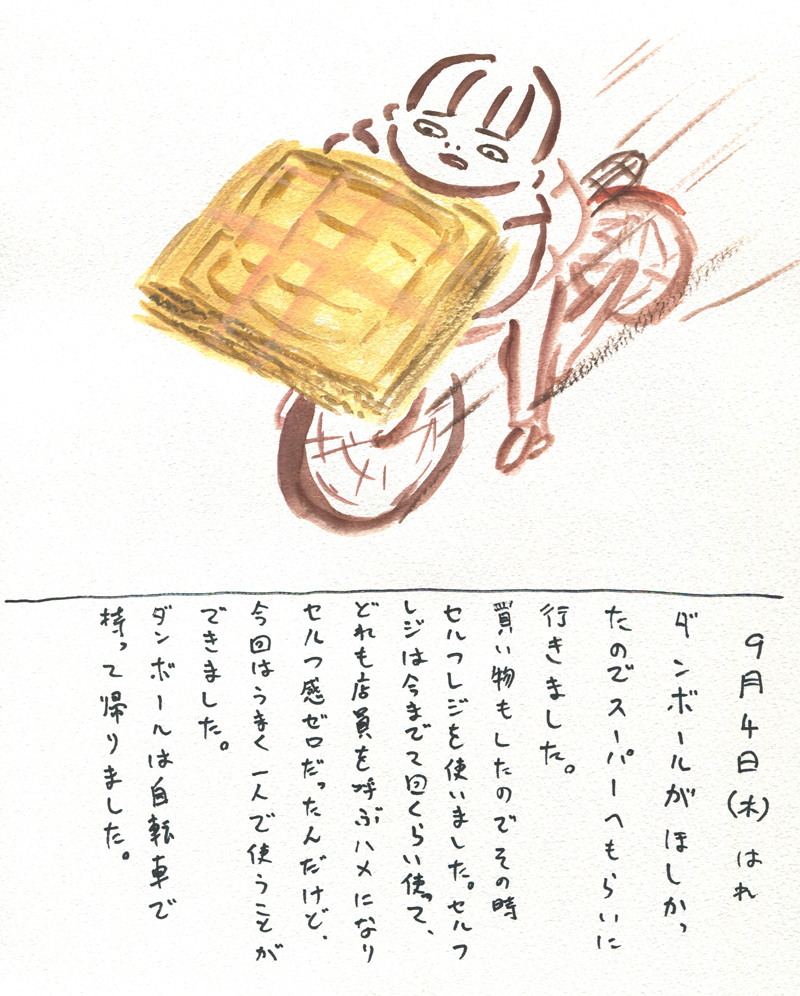 9月4日(木) はれ
ダンボールがほしかっ
たのでスーパーへもらいに
行きました。
買い物もしたのでその時
セルフレジを使いました。セルフ
レジは今まで7回くらい使って、
どれも店員を呼ぶハメになり
セルフ感ゼロだったんだけど、
今回はうまく一人で使うことが
できました。
ダンボールは自転車で
持って帰りました。